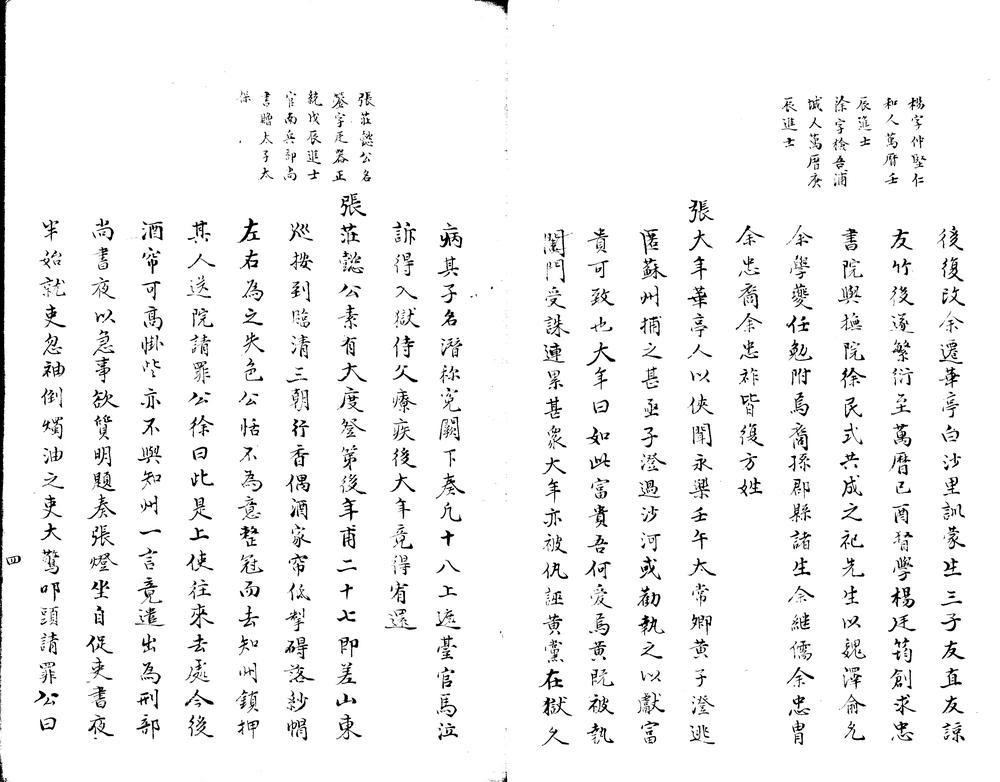 楊字仲堅仁
和人萬曆壬
辰進士
徐字檢吾浦
城人萬曆庚
辰進士
後復改余遷華亭白沙里訓蒙生三子友直友諒
友竹後遂繁衍至萬曆已酉督學楊廷筠創求忠
書院與撫院徐民式共成之祀先生以魏澤俞允
余學夔任勉附焉裔孫郡縣諸生余繼儒余忠胄
余忠裔余忠祚皆復方姓
張大年華亭人以俠聞永樂壬午太常卿黃子澄逃
匿蘇州捕之甚亟子澄過沙河或勸執之以獻富
貴可致也大年曰如此富貴吾何愛焉黃既被執
闔門受誅連累甚衆大年亦被仇誣黃黨在獄久
病其子名潛稱寃闕下奏凡十八上遮臺官馬泣
訴得入獄侍父療疾後大年竟得宥還
張莊懿公名
鎣字廷器正
統戊辰進士
官南兵部尚
書贈太子太
保
張莊懿公素有大度登第後年甫二十七即差山東
巡按到臨清三朝行香偶酒家帘低掣碍落紗帽
左右為之失色公恬不為意整冠而去知州鎖押
其人送院請罪公徐曰此是上使往來去處今後
酒帘可高掛些亦不與知州一言竟遣出為刑部
尚書夜以急事欲質明題奏張燈坐自促吏書夜
半始就吏忽袖倒燭油之吏大驚叩頭請罪公曰
四